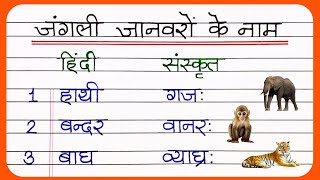 जंगली जानवरों के नाम
हिंदी संस्कृत
1 हाथी गजः
2 बन्दर वानरः
3 बाघ व्याघ्रः